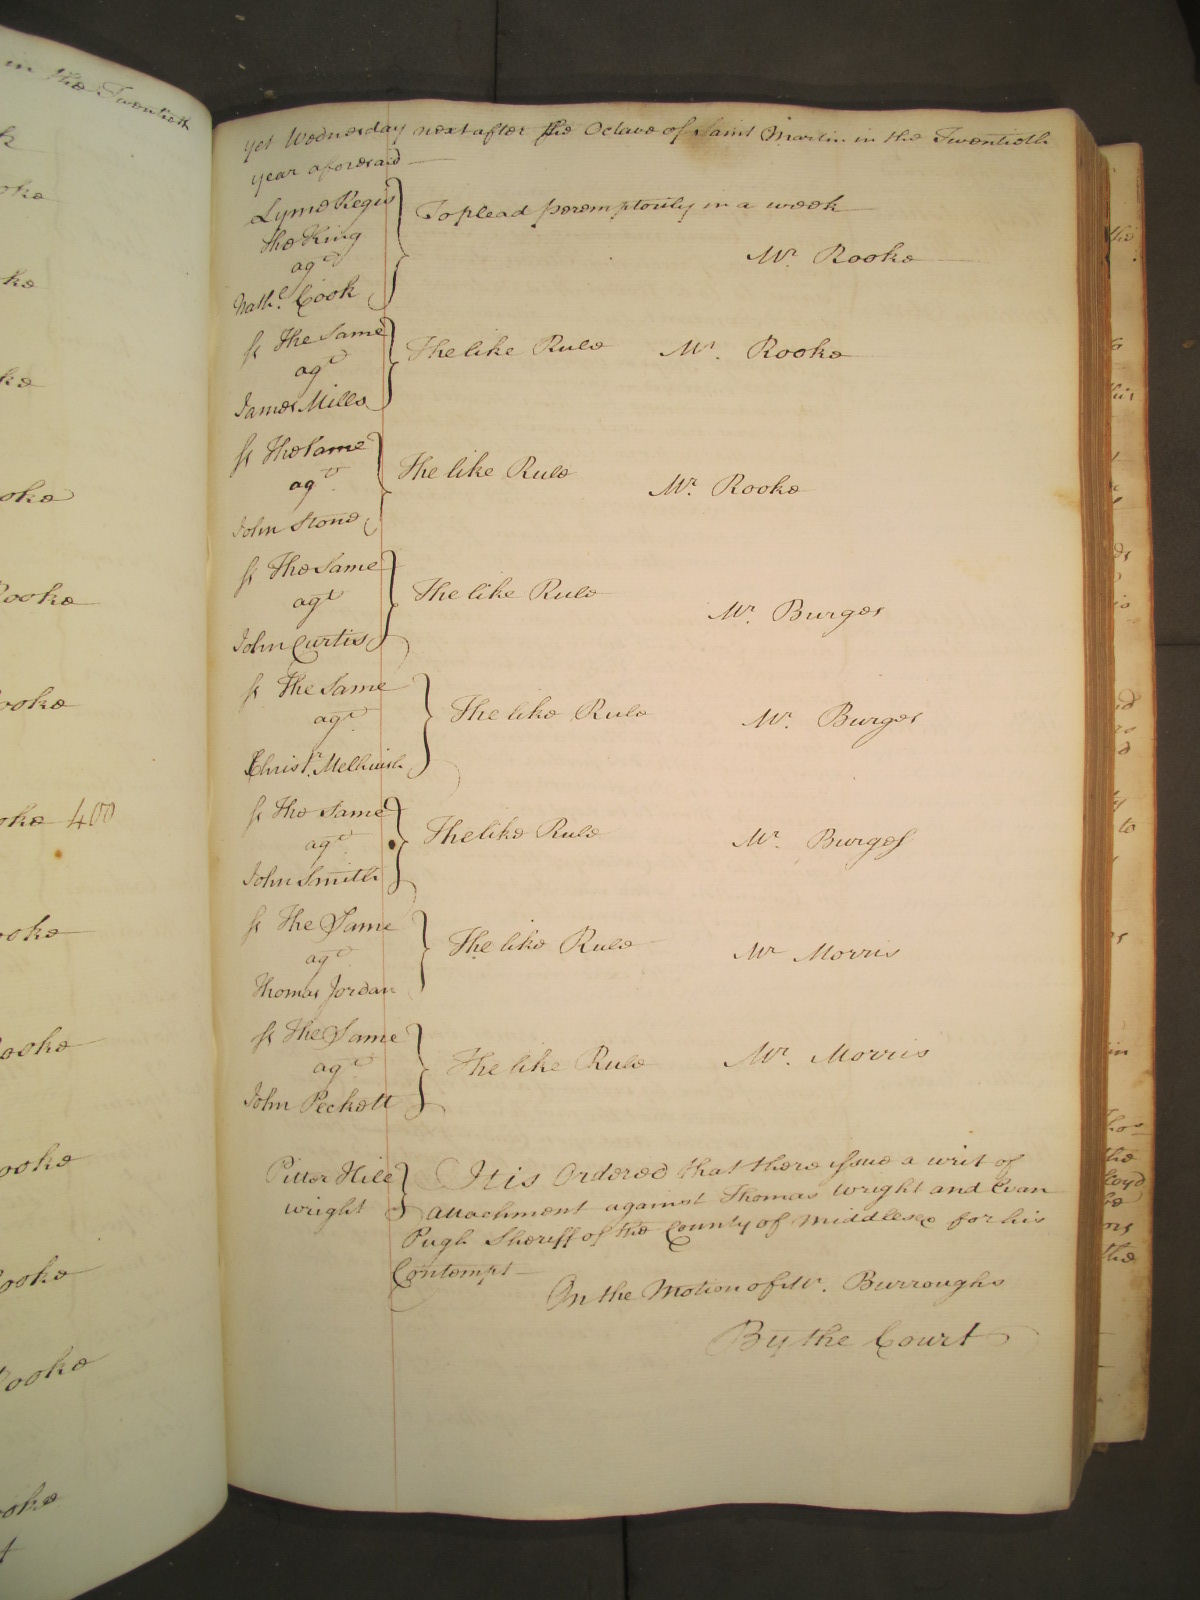 in the Twentieth
yet Wednesday next after the Octave of Saint Martin in the Twentieth
year aforesaid
Lyme Regis
the King
agt
Nathl. Cook
To plead peremptorily in a week
Mr. Rooke
ss The Same
agt
James Mills
The like Rule Mr. Rooke
ss The Same
agt
John Stone
The like Rule
Mr. Rooke
ss The Same
agt
John Curtis
The like Rule
Mr. Burges
ss The Same
agt
Christr. Melhuish
The like Rule Mr. Burges
ss The Same
agt
John Smith
The like Rule Mr. Burges
ss The Same
agt
Thomas Jordan
The like Rule Mr Morris
ss The Same
agt
John Peckett
The like Rule Mr. Morris
Hile
wright
It is Ordered that there issue a writ of
attachment against Thomas Wright and Evan
Pugh Sheriff of the County of Middlesex for his
Contempt
On the Motion of Mr. Burroughs
By the Court
Rooke
400